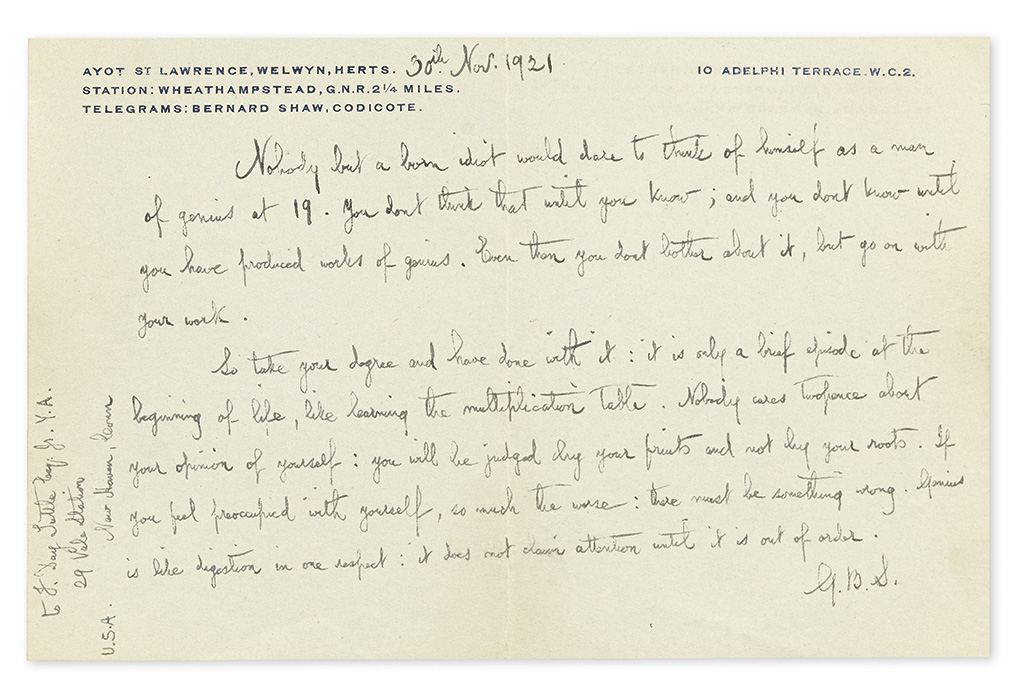 AYOT ST LAWRENCE, WELWYN, HERTS. 30th Nov. 1921.
STATION: WHEATHAMPSTEAD, G.N.R. 2¼ MILES.
TELEGRAMS: BERNARD SHAW, CODICOTE.
10 ADELPHI TERRACE. W.C.2.
Nobody but a born idiot would dare to think of himself as a man
of genius at 19. You dont think that until you know; and you dont know until
you have produced works of genius. Even then you dont bother about it, but go on with
your work.
So take your degree and have done with it: it is only a brief episode at the
beginning of life, like learning the multiplication table. Nobody cares twopence about
your opinion of yourself: you will be judged by your fruits and not by your roots. If
you feel preoccupied with yourself, so much the worse: there must be something wrong. Genius
is like digestion in one respect: it does not claim attention until it is out of order.
G.B.S.
to F. Day Tuttle Esq. Jr. Y.A.
29 Yale Station
New Haven, Conn
U.S.A.